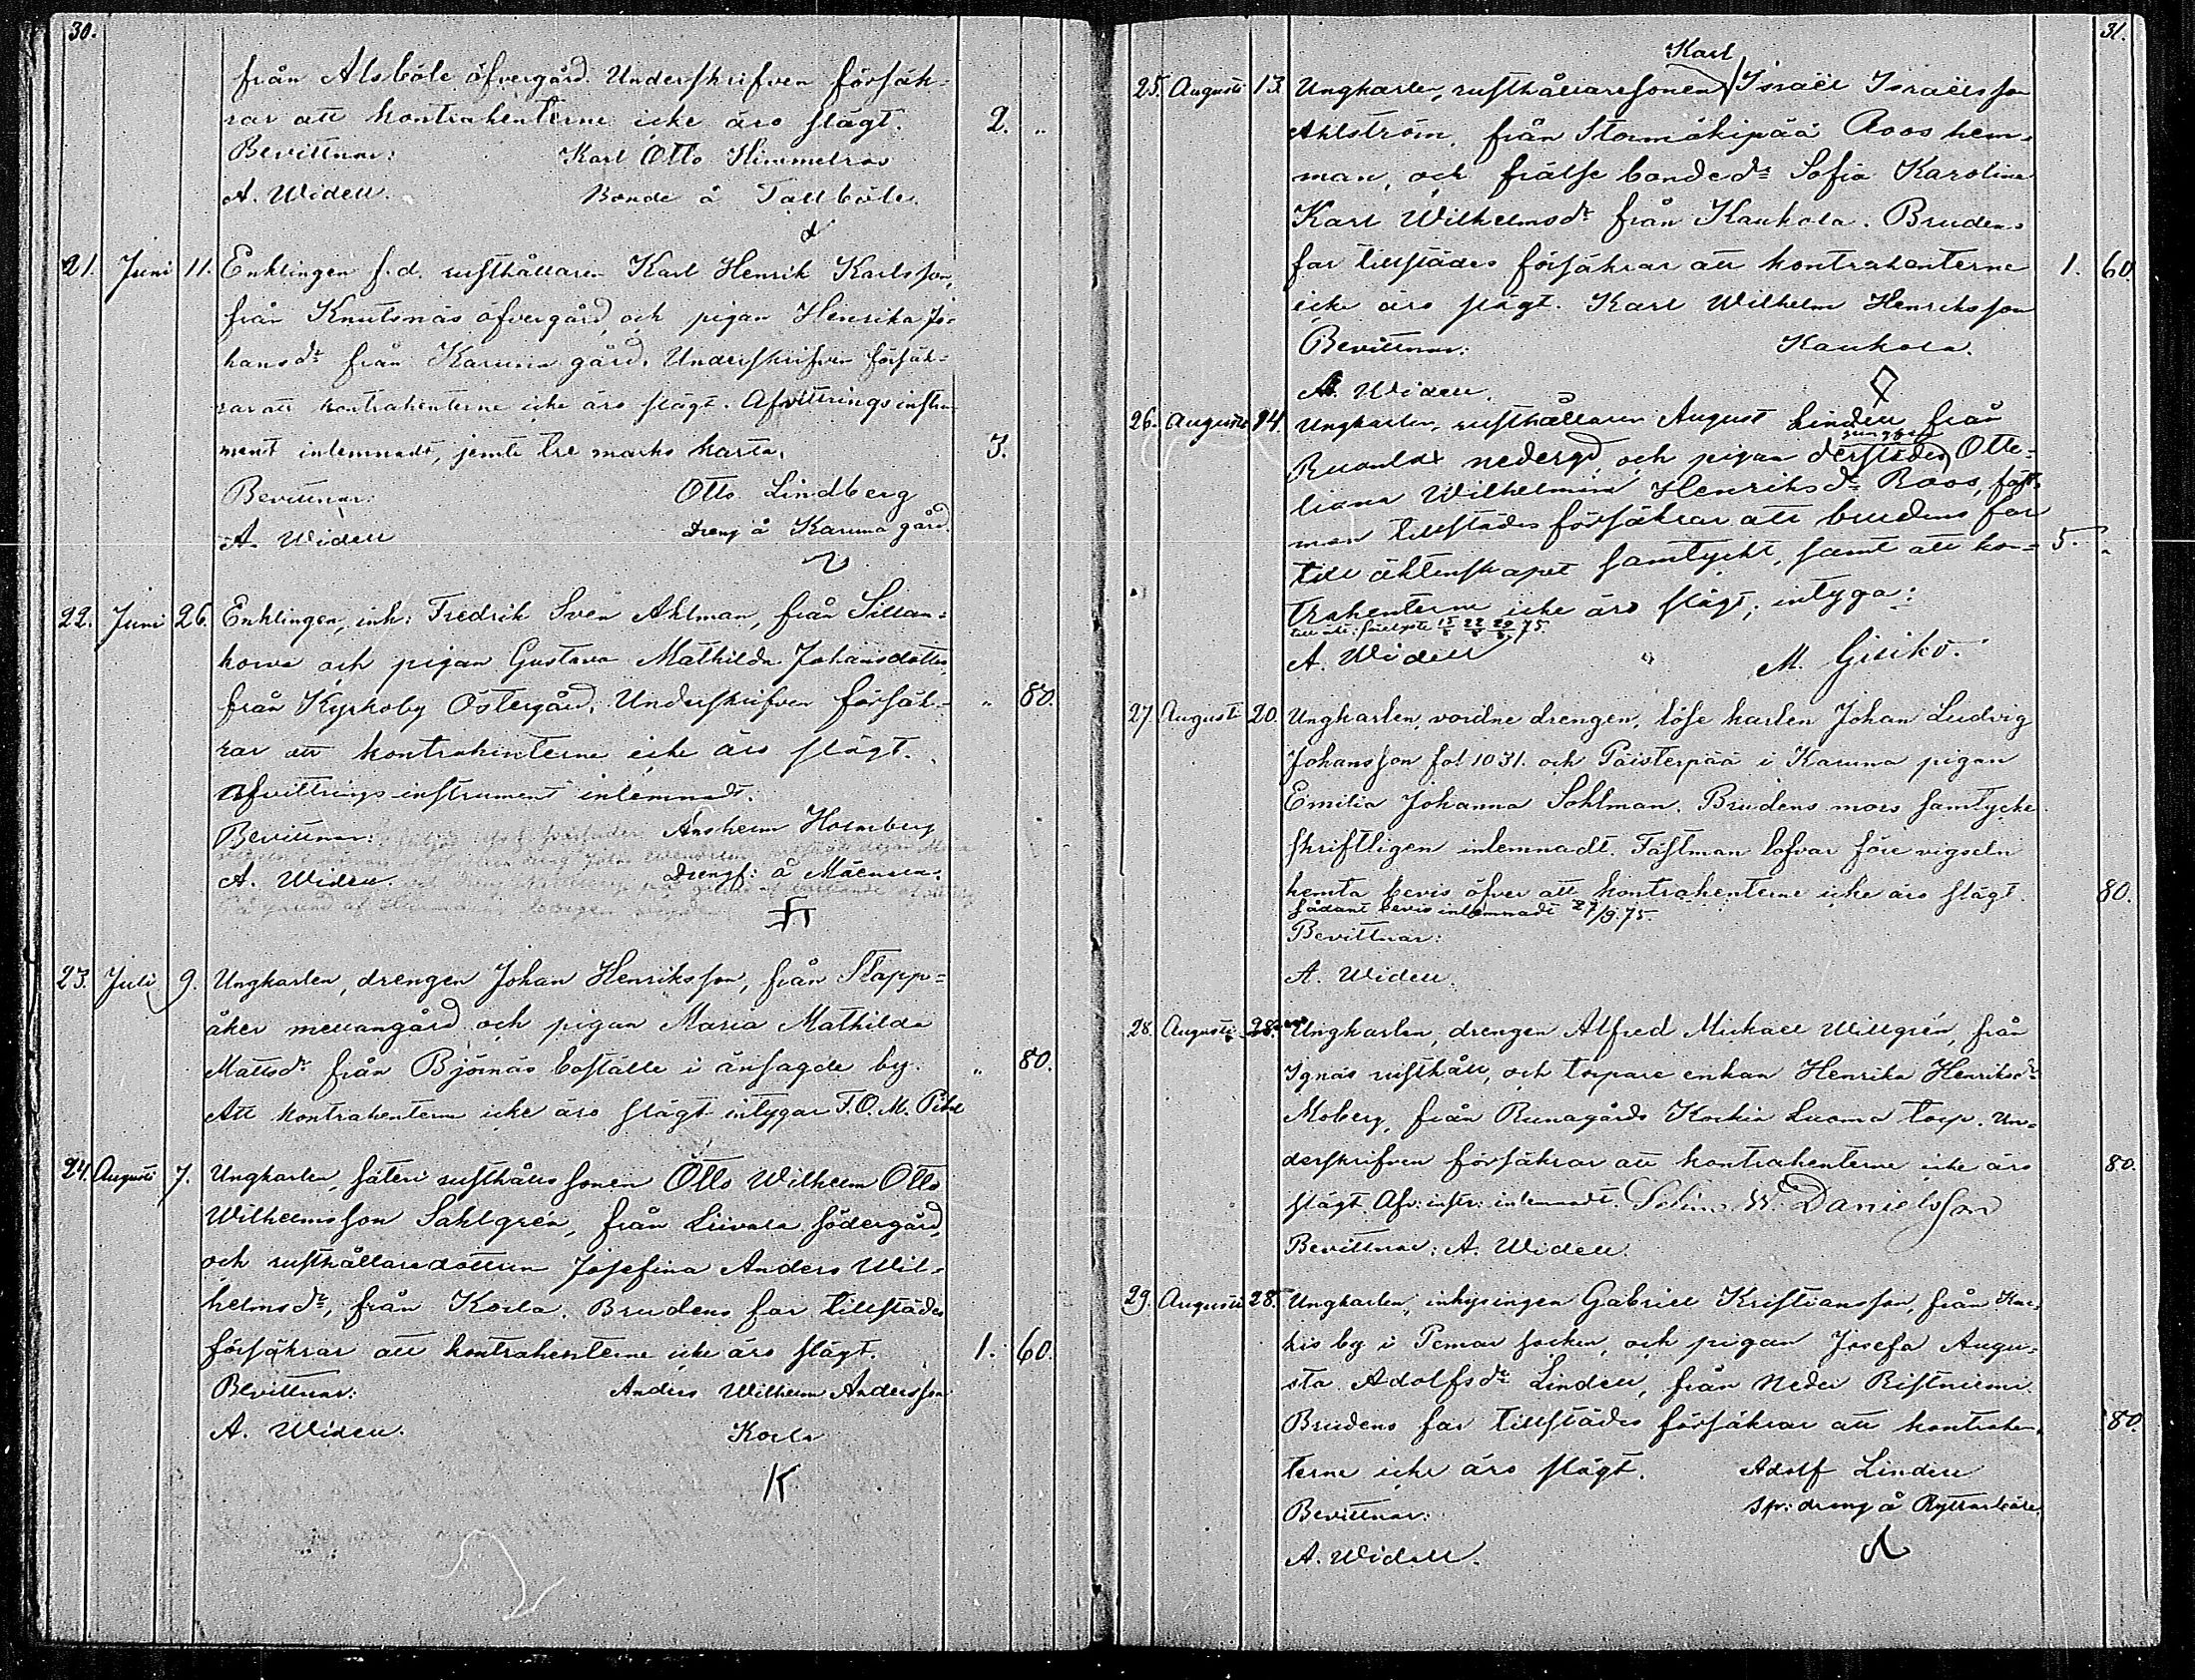 30.
från Alsböle öfvergård. Underskrifven försäk-
rar att kontrahenterne icke äro slägt. 2. "
Bevittnar: Karl Otto Himmelroos
A. Widell. Bonde å Tallböle
21. Juni 11. Enklingen f.d. rusthållaren Karl Henrik Karlsson,
från Knutsnäs öfvergård, och pigan Henrika Jo-
hansdr från Karuna gård. Underskrifven försäk-
rar att kontrahenterne icke äro slägt. Afvittringsinstru-
ment inlemnadt, jemte tre marks karta. 3.
Bevittnar: Otto Lindberg
A. Widell dreng å Karuna gård.
22. Juni 26. Enklingen, inh: Fredrik Sven Ahlman, från Sillan-
korva och pigan Gustava Mathilda Johansdotter
från Kyrkoby Östergård. Underskrifven försäk- " 80.
rar att kontrahenterne icke äro slägt.
Afvittrings-instrument inlemnadt.
Bevittnar: Anshelm Holmberg
A. Widell. drengf: å Mäensaa.
23. Juli 9. Ungkarlen, drengen Johan Henriksson, från Flapp-
åker mellangård och pigan Maria Mathilda
Mattsdr från Björnäs boställe i ånsagde by. " 80.
Att kontrahenterne icke äro slägt intygar T.O.M.
24. Augusti 7. Ungkarlen, säteri rusthålls sonen Otto Wilhelm Otto
Wilhelmsson Sahlgrén, från Liivala södergård,
och rusthållaredottren Josefina Anders Wil-
helmsdr, från Korla. Brudens far tillstädes
försäkrar att kontrahenterne icke äro slägt. 1. 60.
Bevittnar: Anders Wilhelm Andersson
A. Widell. Korla
31.
Karl
25. Augusti 13. Ungkarlen, rusthållaresonen Israël Israëlsson
Ahlström, från Stormäkipää Roos hem-
man, och frälse bondedr Sofia Karolina
Karl Wilhelmsdr från Kaukola. Brudens
far tillstädes försäkrar att kontrahenterne 1. 60
icke äro slägt. Karl Wilhelm Henriksson
Bevittnar: Kaukola.
A. Widell.
26. Augusti 14. Ungkarlen, rusthållaren August Lindell från
nedergd, och pigan derstädes Otte-
liana Wilhelmina Henriksdr Roos, fäst-
man tillstädes försäkrar att brudens far 5. "
till äktenskapet samtyckt, samt att kon-
trahenterne icke äro slägt, intyga:
A. Widell M. Girikó.
27. Augusti 20. Ungkarlen, vordne drengen, löse karlen Johan Ludvig
Johansson fol 1031. och Päisterpää i Karuna pigan
Emilia Johanna Sohlman. Brudens mors samtycke
skriftligen inlemnadt. Fästman lofvar före vigseln
hemta bevis öfver att kontrahenterne icke äro slägt. 80.
sådant bevis inlemnadt 27/9.75
Bevittnar:
A. Widell.
28. Augusti 28. Ungkarlen, drengen Alfred Mickael Willgrén, från
Ignäs rusthåll, och torpare enkan Henrika Henriksdr
Moberg, från Runagårds Korkia Luoma torp. Un-
derskrifven försäkrar att kontrahenterne icke äro 80.
slägt. Afv: instr: inlemnadt. W. Danielsson
Bevittnar: A. Widell.
29. Augusti 28. Ungkarlen, inhysingen Gabriel Kristiansson, från
kis by i Pemar socken, och pigan Josefa Augu-
sta Adolfsdr Lindell, från Neder Ristniemi.
Brudens far tillstädes försäkrar att kontrahen- 80.
terne icke äro slägt. Adolf Lindell
Bevittnar: sp: dreng å Ryttarböle.
A. Widell.